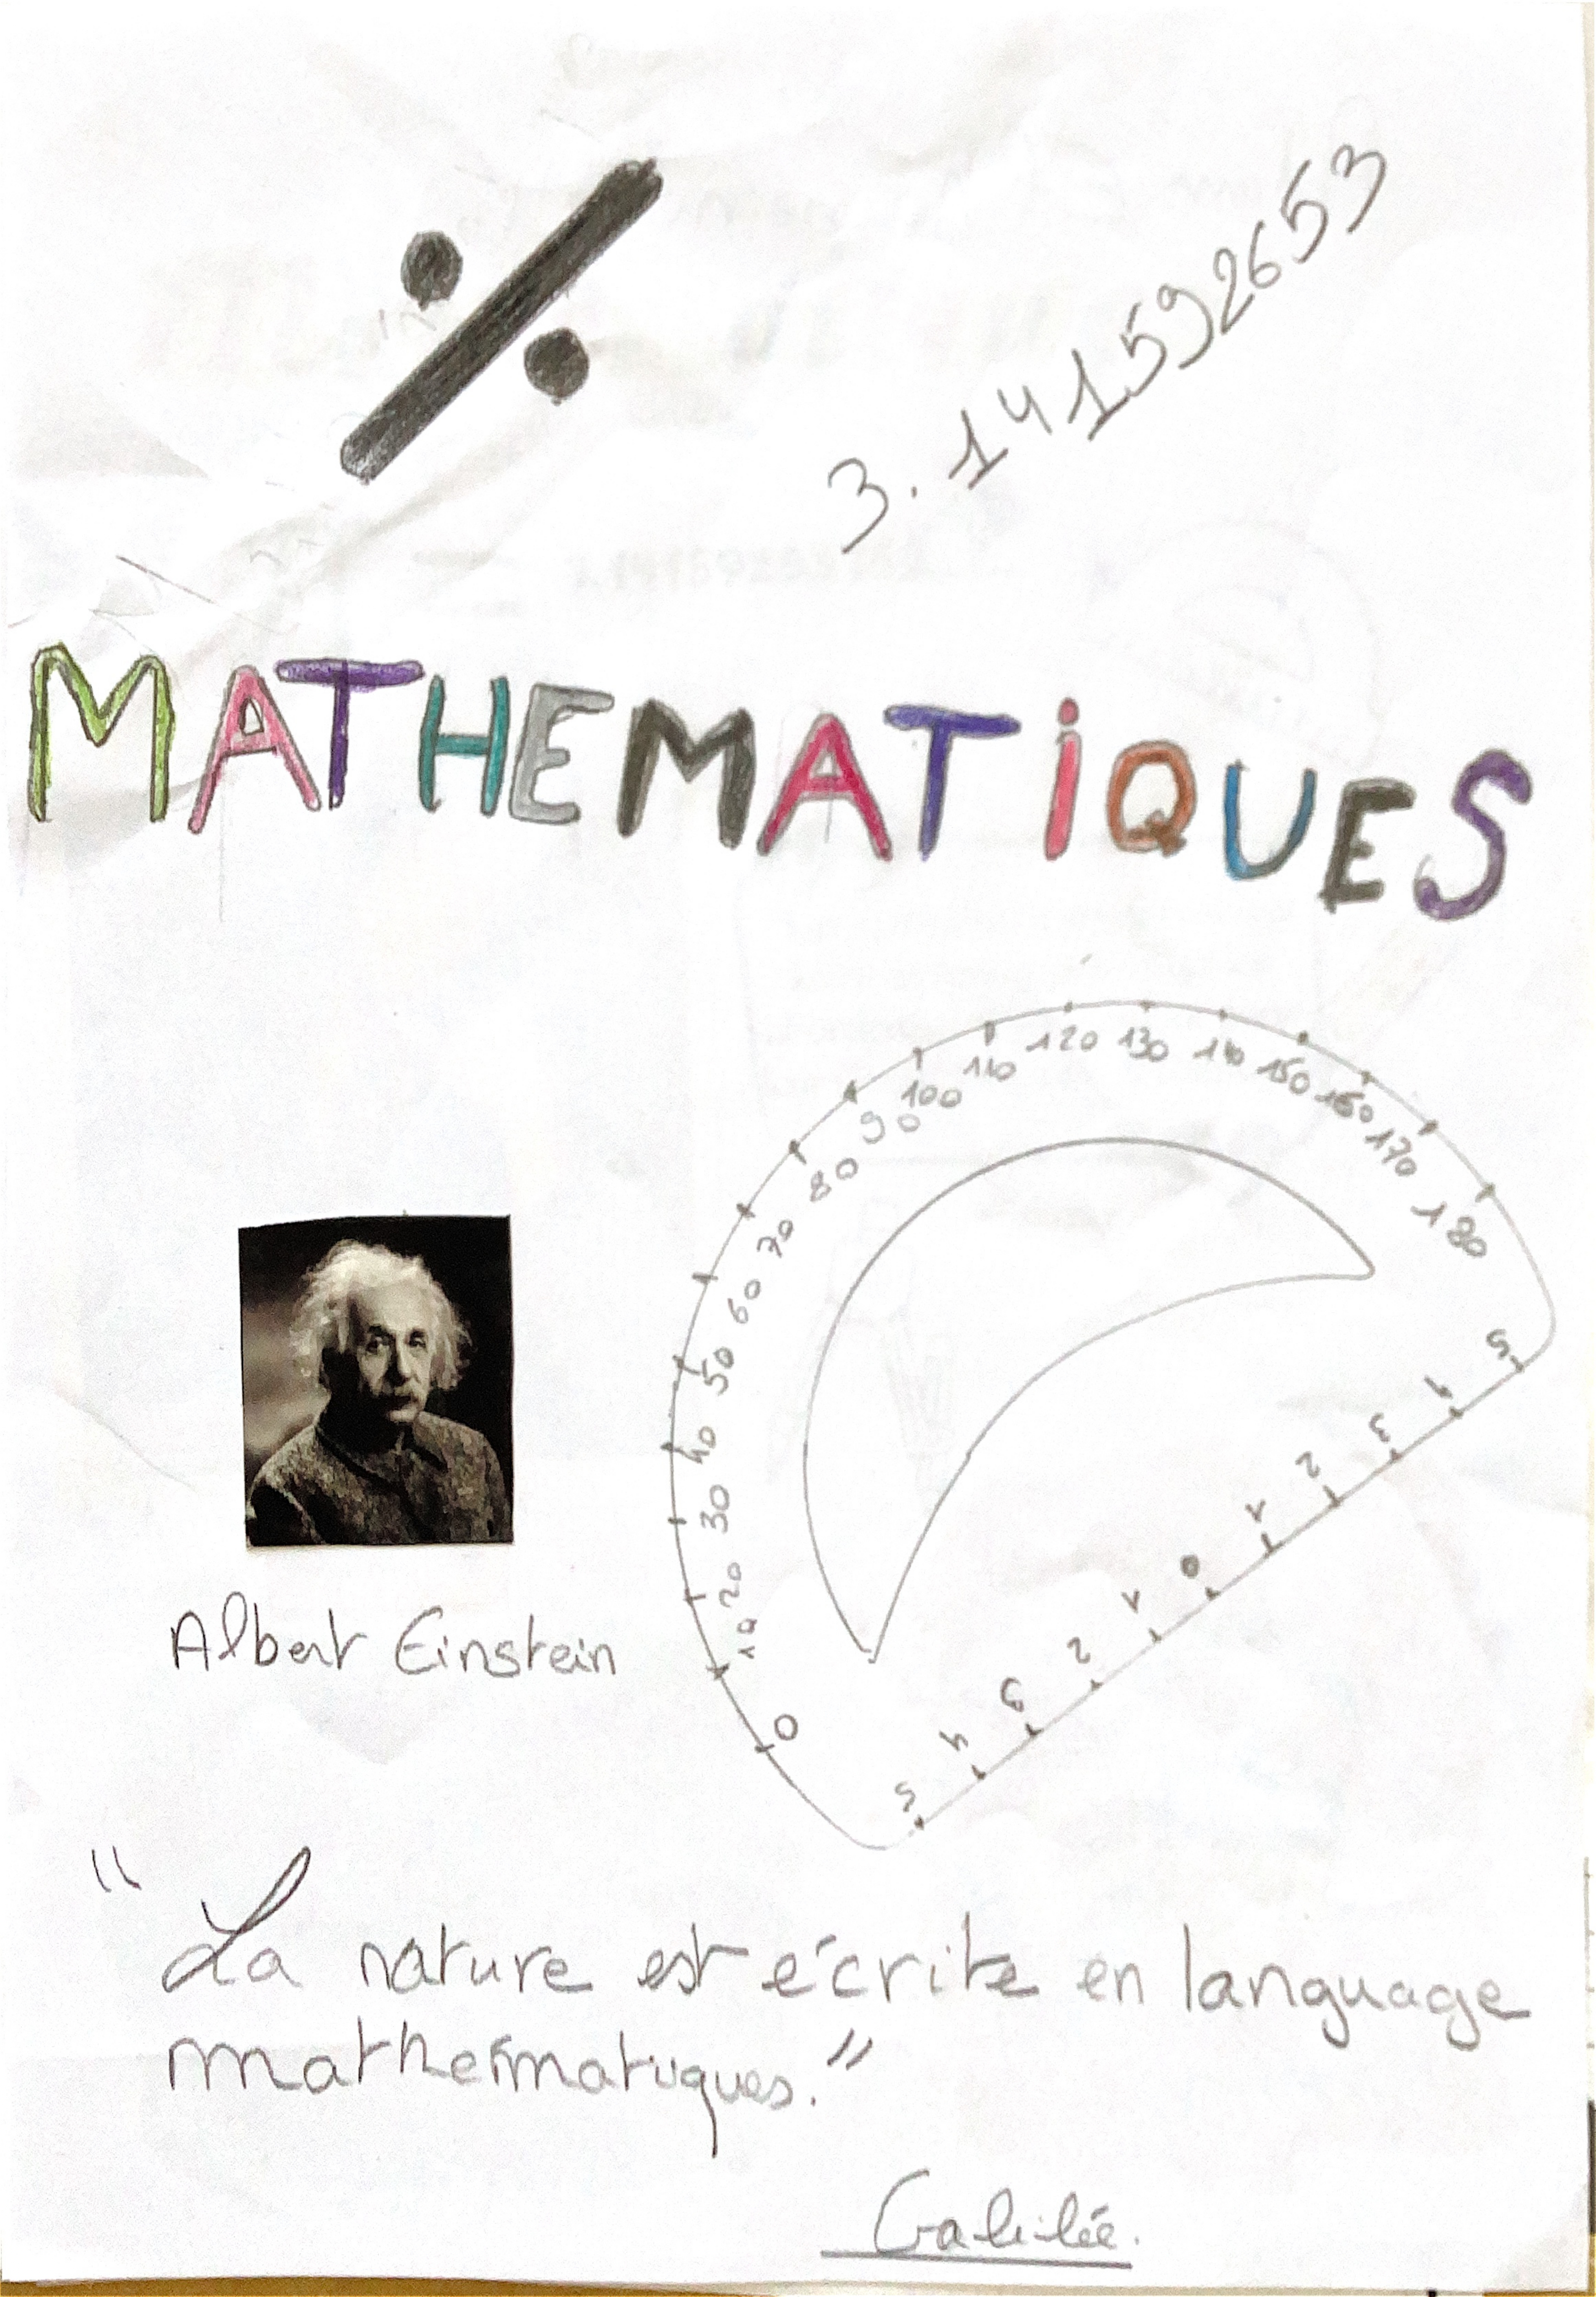 ÷
3.141592653
MATHEMATiQUES
0 10 20 30 40 50 60 70 80 90 100 110 120 130 140 150 160 170 180
5 4 3 2 1 0 1 2 3 4 5
Albert Einstein
"La nature est écrite en language
mathématiques."
Galilée.